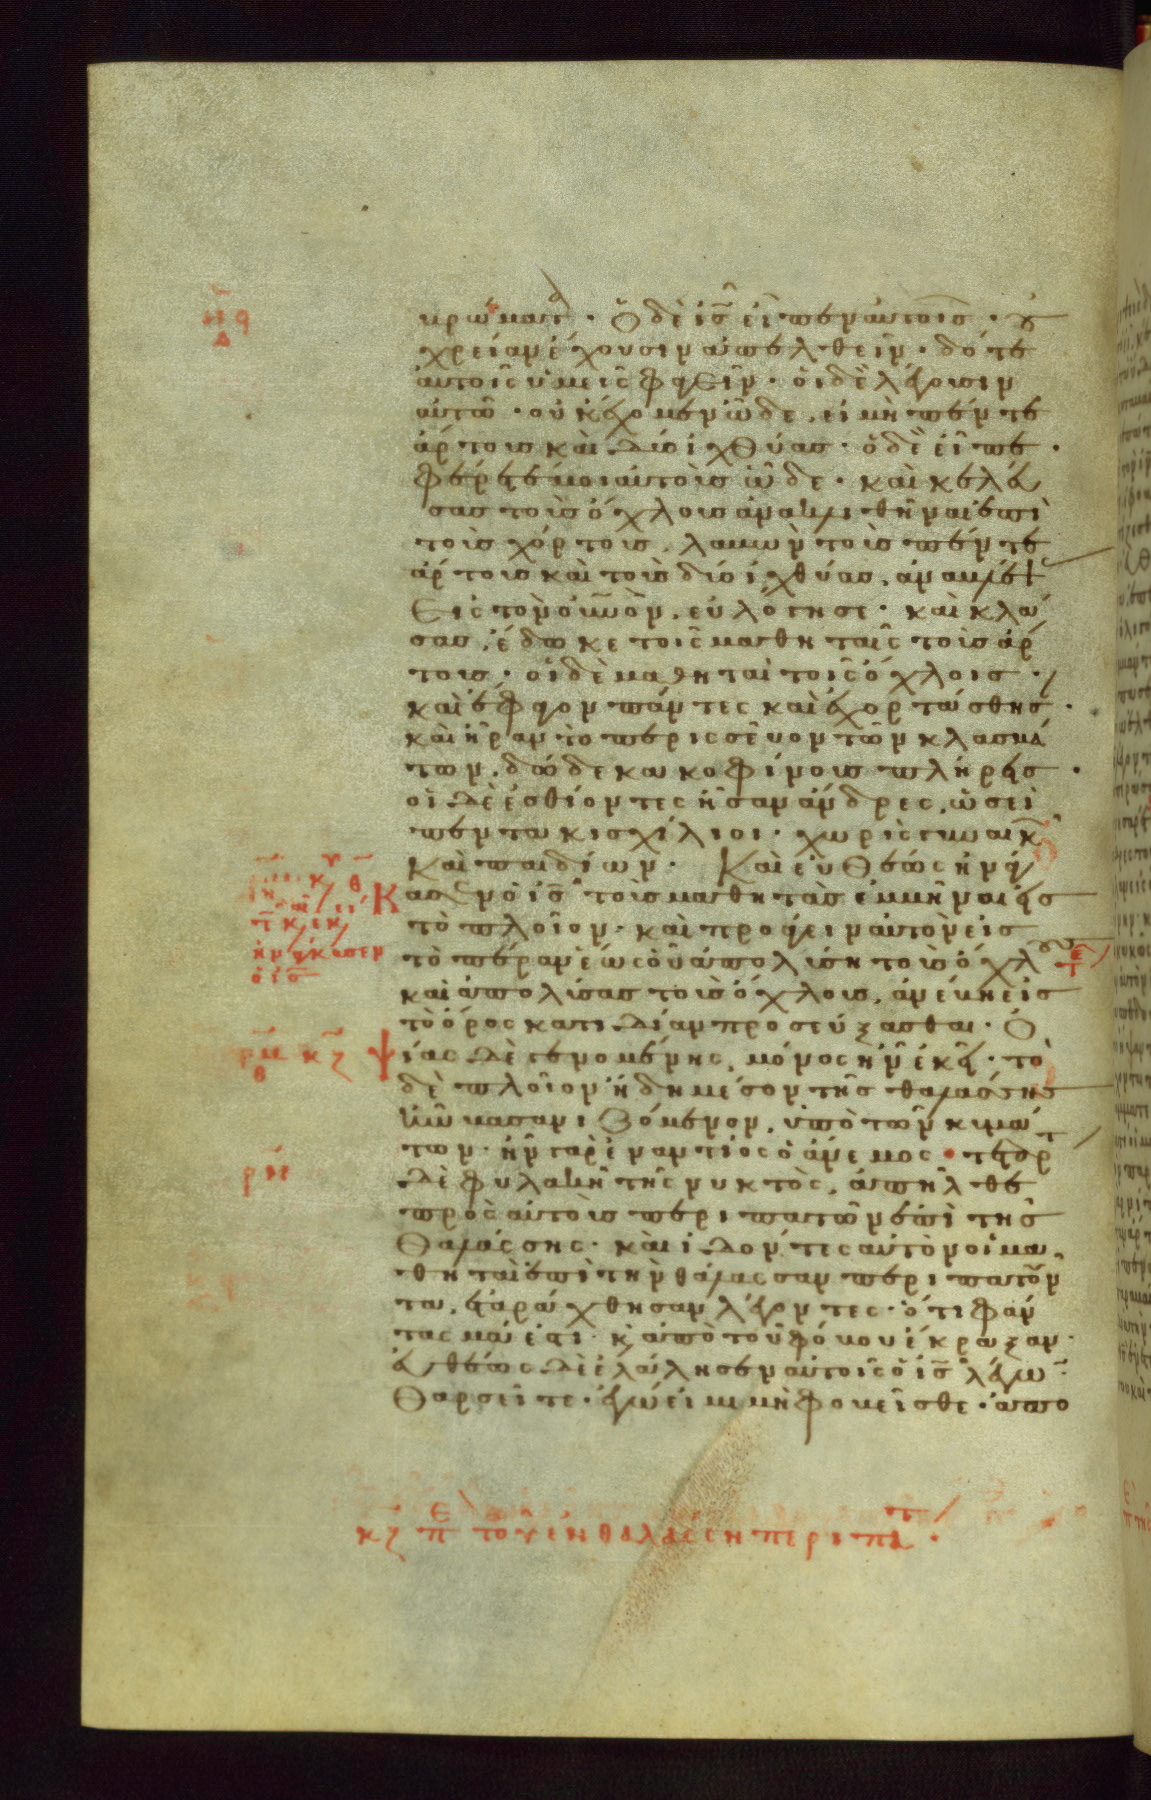 βρώματα · Ὁ δὲ ἰ̅ς̅ εἶπεν αὐτοῖς · οὐ
χρείαν ἔχουσιν ἀπελθεῖν · δότε
αὐτοῖς ὑμεῖς φαγεῖν · οἱ δὲ λέγουσιν
αὐτῶ · οὐκ ἔχομεν ὧδε, εἰ μὴ πέντε
ἄρτους καὶ δύο ἰχθύας · ὁ δὲ εἶπε ·
φέρετέ μοι αὐτοὺς ὧδε · καὶ κελεύ
σας τοὺς ὄχλους ἀνακλιθῆναι ἐπὶ
τοὺς χόρτους, λαβὼν τοὺς πέντε
ἄρτους καὶ τοὺς δύο ἰχθύας, ἀναβλέ
εἰς τὸν οὐ̅νὸν, εὐλόγησε · καὶ κλά
σας, ἔδωκε τοῖς μαθηταῖς τοὺς ἄρ
τους · οἱ δὲ μαθηταὶ τοῖς ὄχλοις ·
καὶ ἔφαγον πάντες καὶ ἐχορτάσθησ̅ ·
καὶ ἦραν τὸ περισσεῦον τῶν κλασμά
των, δώδεκα κοφίνους πλήρεις ·
οἱ δὲ ἐσθίοντες ἦσαν ἄνδρες, ὡσεὶ
πεντακισχίλιοι · χωρὶς γυναικ̅
καὶ παιδίων · Καὶ εὐθέως ἠνάγ
Κασεν ὁ ἰ̅ς̅ τοὺς μαθητὰς ἐμβῆναι εἰς
τὸ πλοῖον · καὶ προάγειν αὐτὸν εἰς
τὸ πέραν ἕως οὗ ἀπολύση τοὺς ὄχλους
καὶ ἀπολύσας τοὺς ὄχλους, ἀνέβη εἰς
τὸ ὄρος κατιδίαν προσεύξασθαι · Ὀ
ψίας δὲ γενομένης, μόνος ἦν ἐκεῖ · τὸ
δὲ πλοῖον ἤδη μέσον τῆς θαλάσσης
ἦν βασανιζόμενον, ὑπὸ τῶν κυμά
των · ἦν γὰρ ἐναντίος ὁ ἄνεμος · τετάρτ
δὲ φυλακῆ τῆς νυκτὸς, ἀπῆλθε
πρὸς αὐτοὺς περιπατῶν ἐπὶ τῆς
θαλάσσης · καὶ ἰδόντες αὐτὸν οἱ μα
θηταὶ ἐπὶ τὴν θάλασσαν περιπατοῦν
τα, ἐταράχθησαν λέγοντες · ὅτι φάν
τασμά ἐστι · κ̀ ἀπὸ τοῦ φόβου ἔκραξαν ·
εὐθέως δὲ ἐλάλησεν αὐτοῖς ὁ ἰ̅ς̅ λέγω̅ ·
Θαρσεῖτε · ἐγώ εἰμι μὴ φοβεῖσθε · ἀπο
κζ πε τοῦ ἐν θαλάσση περιπατ ·